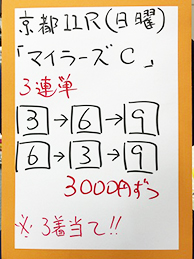 京都11R(日曜)
「マイラーズC」
3連単
3→6→9
6→3→9
3000円ずつ
※3着当て!!